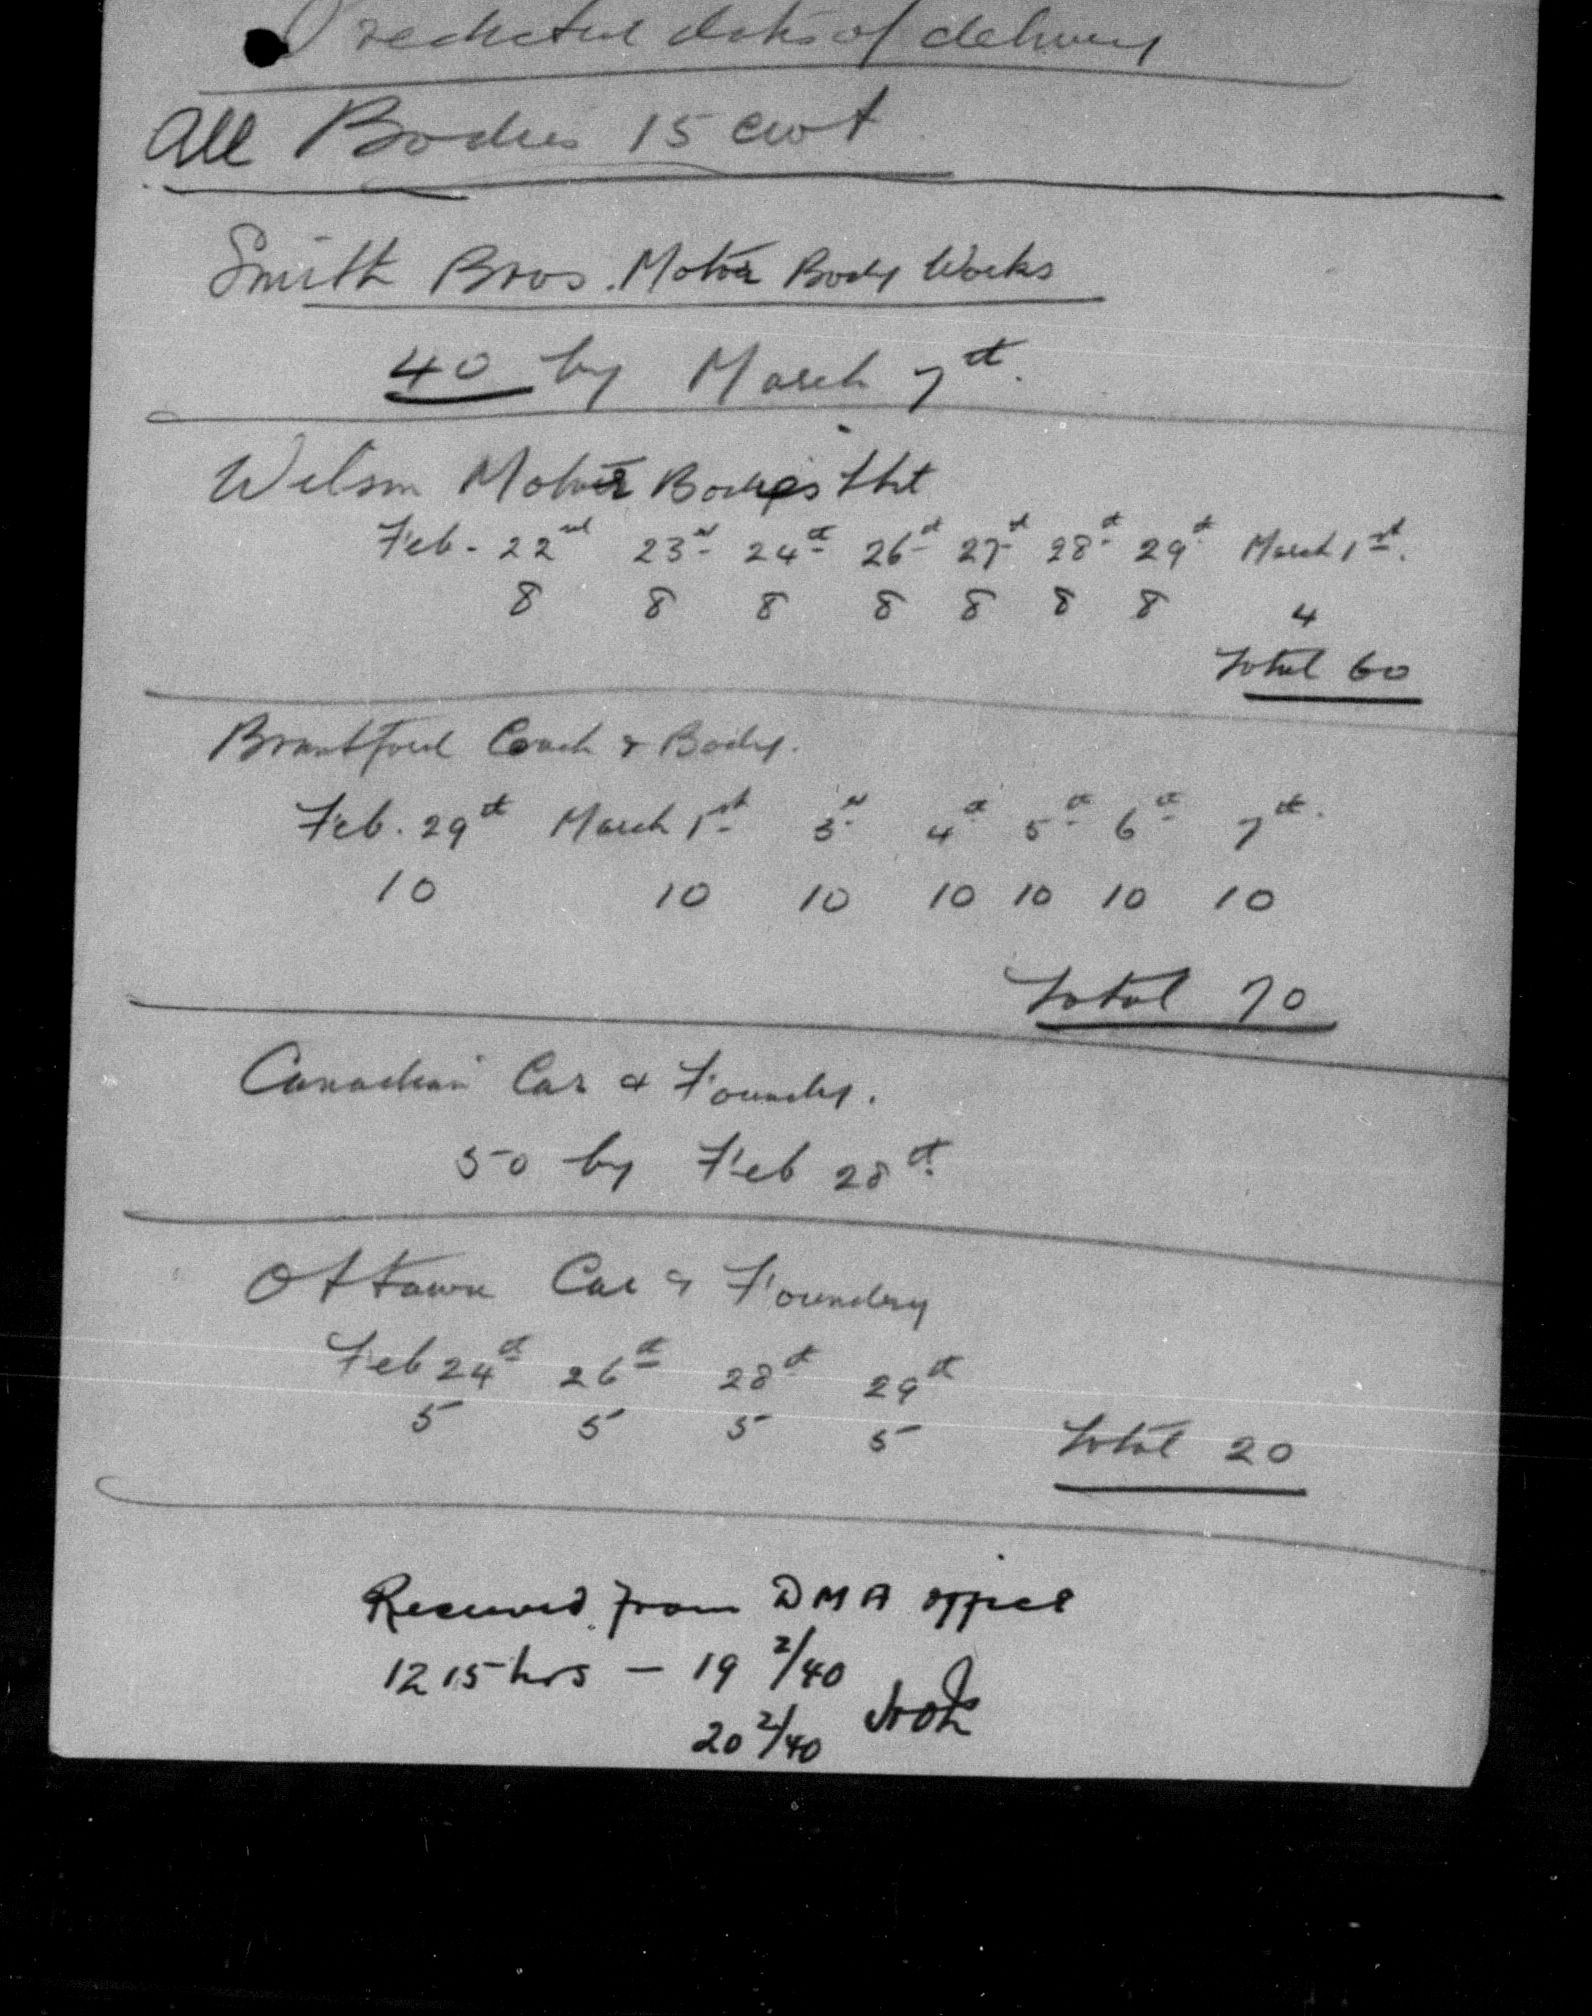 Predicted dates of delivery
All Bodies 15 cwt
Smith Bros. Motor Body Works
40 by March 7th.
Wilson Motor Bodies Ltd
Feb. 22nd 23rd 24th 26th 27th 28th 29th March 1st.
8 8 8 8 8 8 8 4
Total 60
Brantford Coach & Body.
Feb. 29th March 1st 3rd 4th 5th 6th 7th.
10 10 10 10 10 10 10
Total 70
Canadian Car & Foundry.
50 by Feb 28th.
Ottawa Car & Foundery
Feb 24th 26th 28th 29th
5 5 5 5
Total 20
Received from DMA office
1215 hrs - 19 2/40
20 2/40